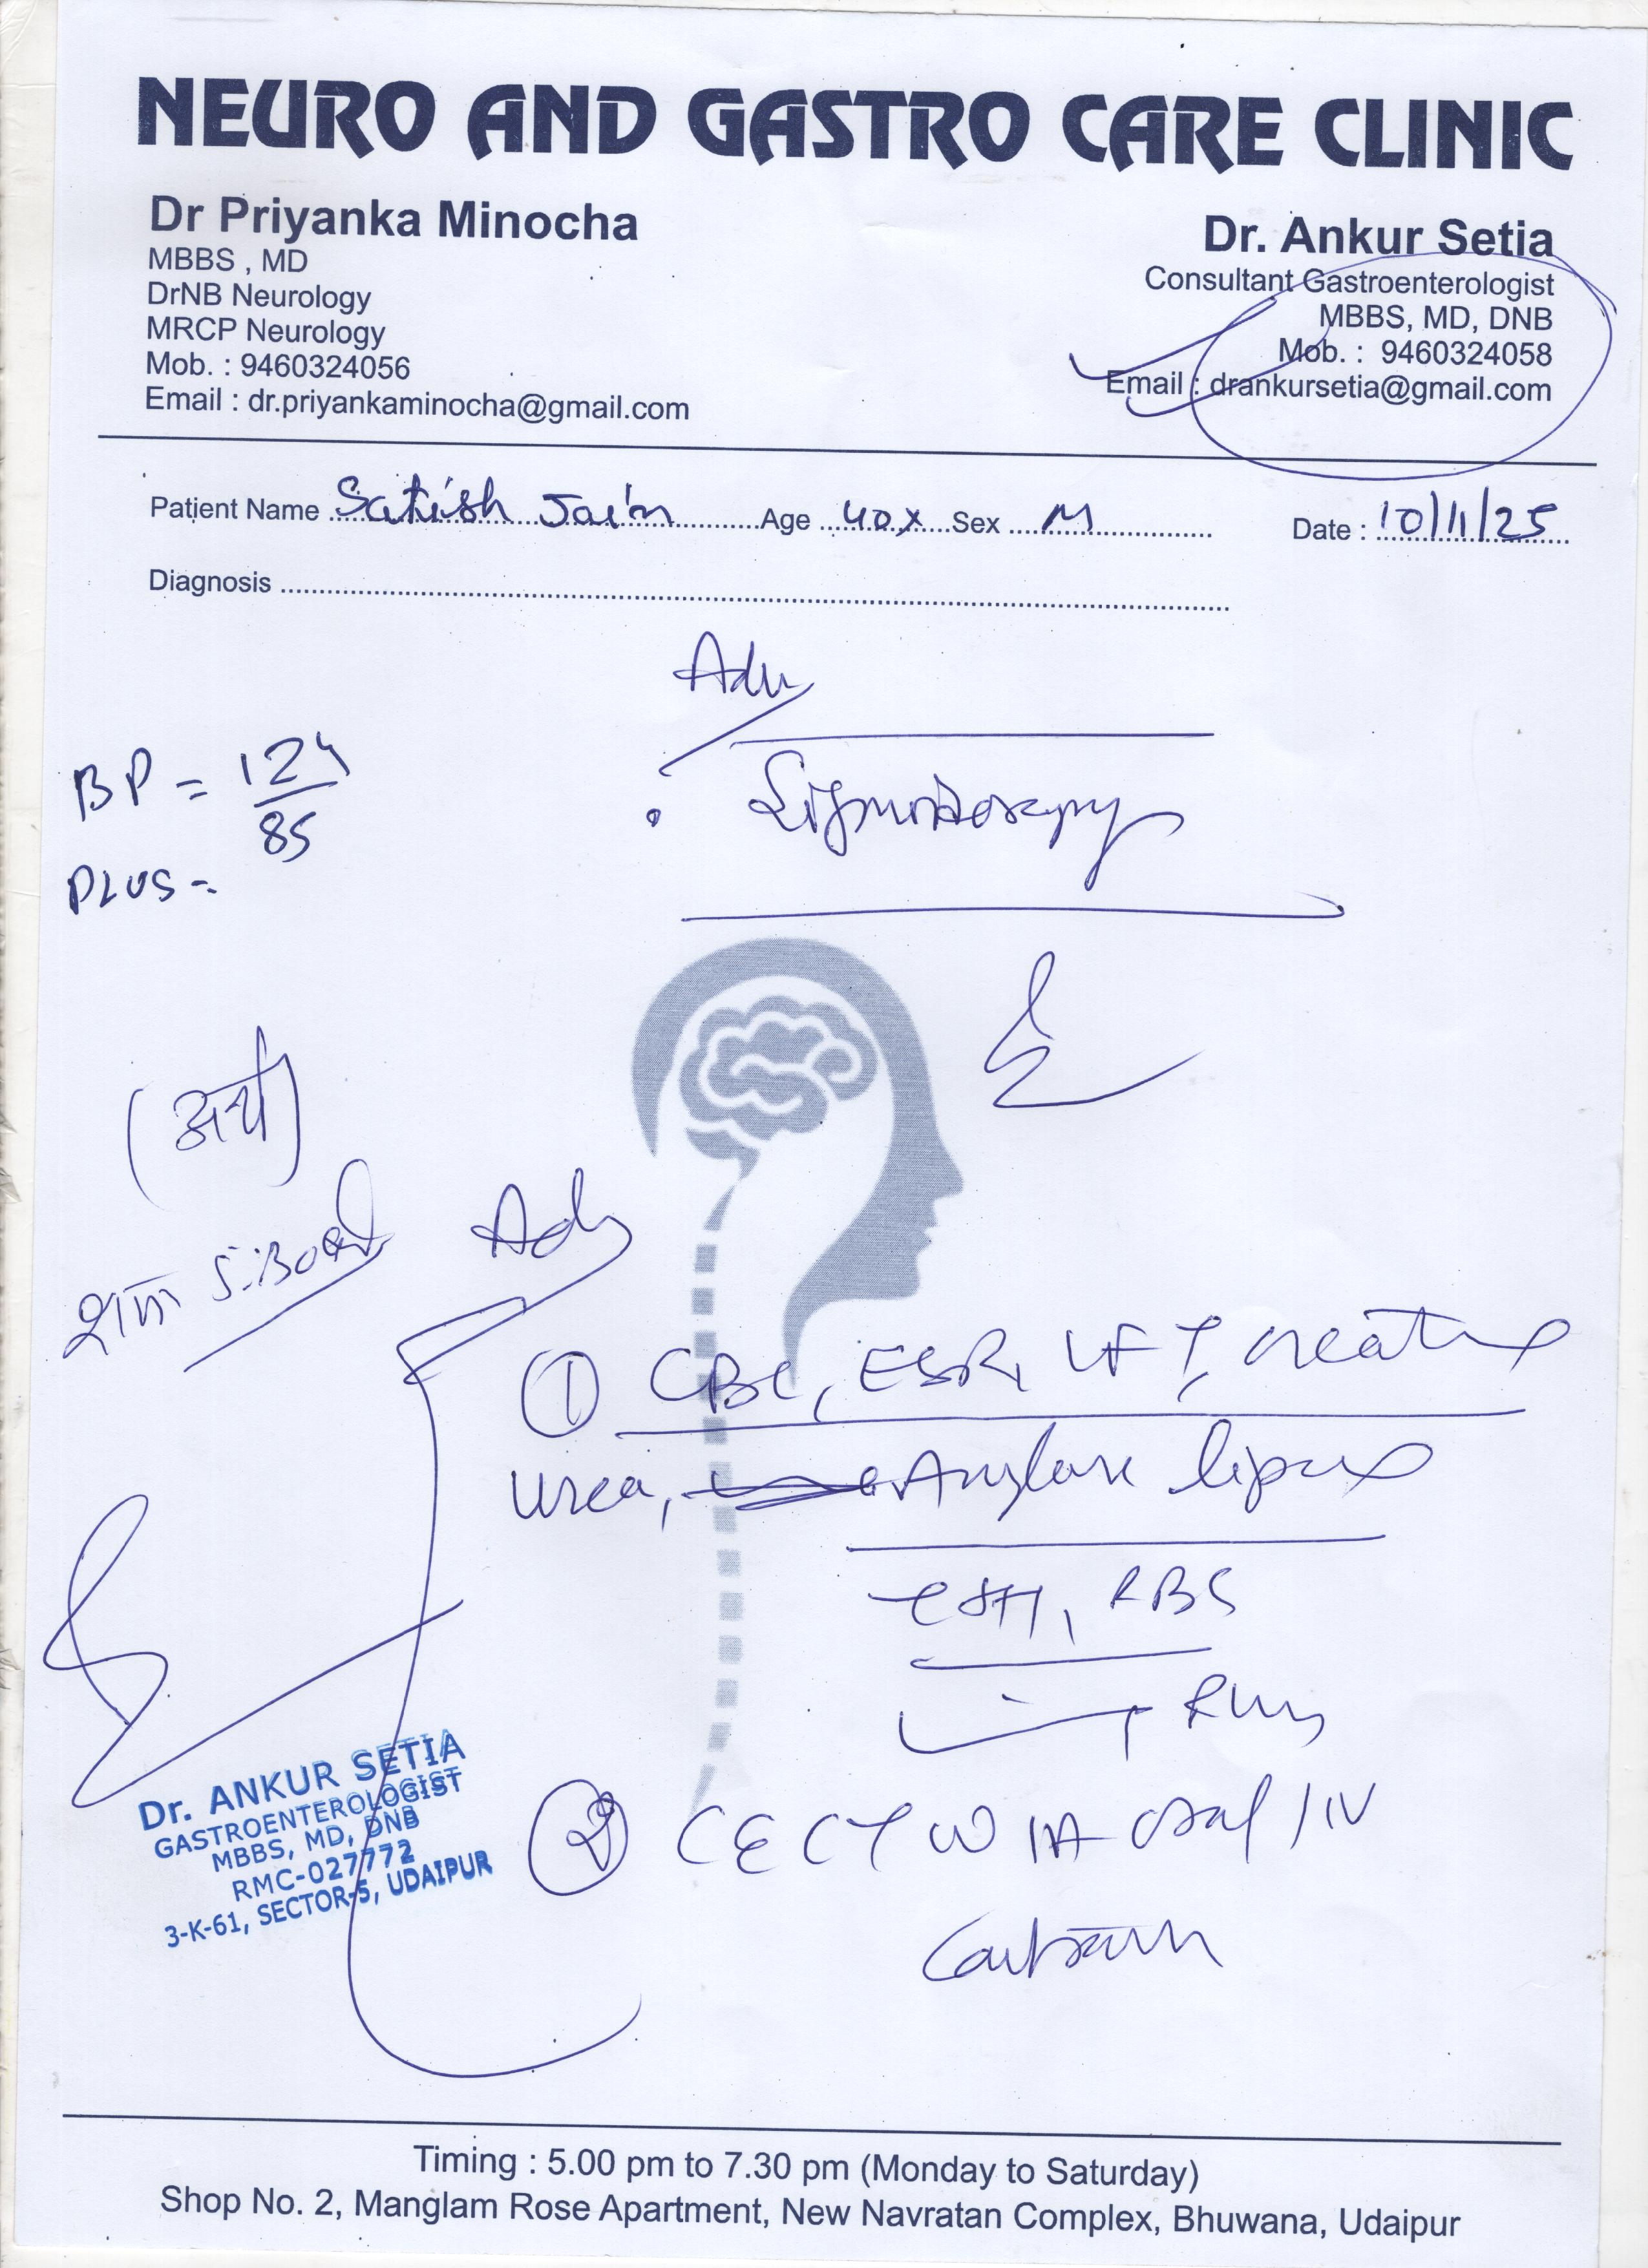 NEURO AND GASTRO CARE CLINIC
Dr Priyanka Minocha
MBBS , MD
DrNB Neurology
MRCP Neurology
Mob. : 9460324056
Email : dr.priyankaminocha@gmail.com
Dr. Ankur Setia
Consultant Gastroenterologist
MBBS, MD, DNB
Mob. : 9460324058
Email : drankursetia@gmail.com
Patient Name Satish Jain Age 40 Sex M Date : 10/11/25
Diagnosis
Adv
BP = 124/85
Sigmoidoscopy
PLUS =
Adv
① CBC, ESR, LFT, creatine
Urea, Amylase lipase
RBS
② CECT W/A oral / IV
Contrast
Dr. ANKUR SETIA
GASTROENTEROLOGIST
MBBS, MD, DNB
RMC-027772
3-K-61, SECTOR-5, UDAIPUR
Timing : 5.00 pm to 7.30 pm (Monday to Saturday)
Shop No. 2, Manglam Rose Apartment, New Navratan Complex, Bhuwana, Udaipur